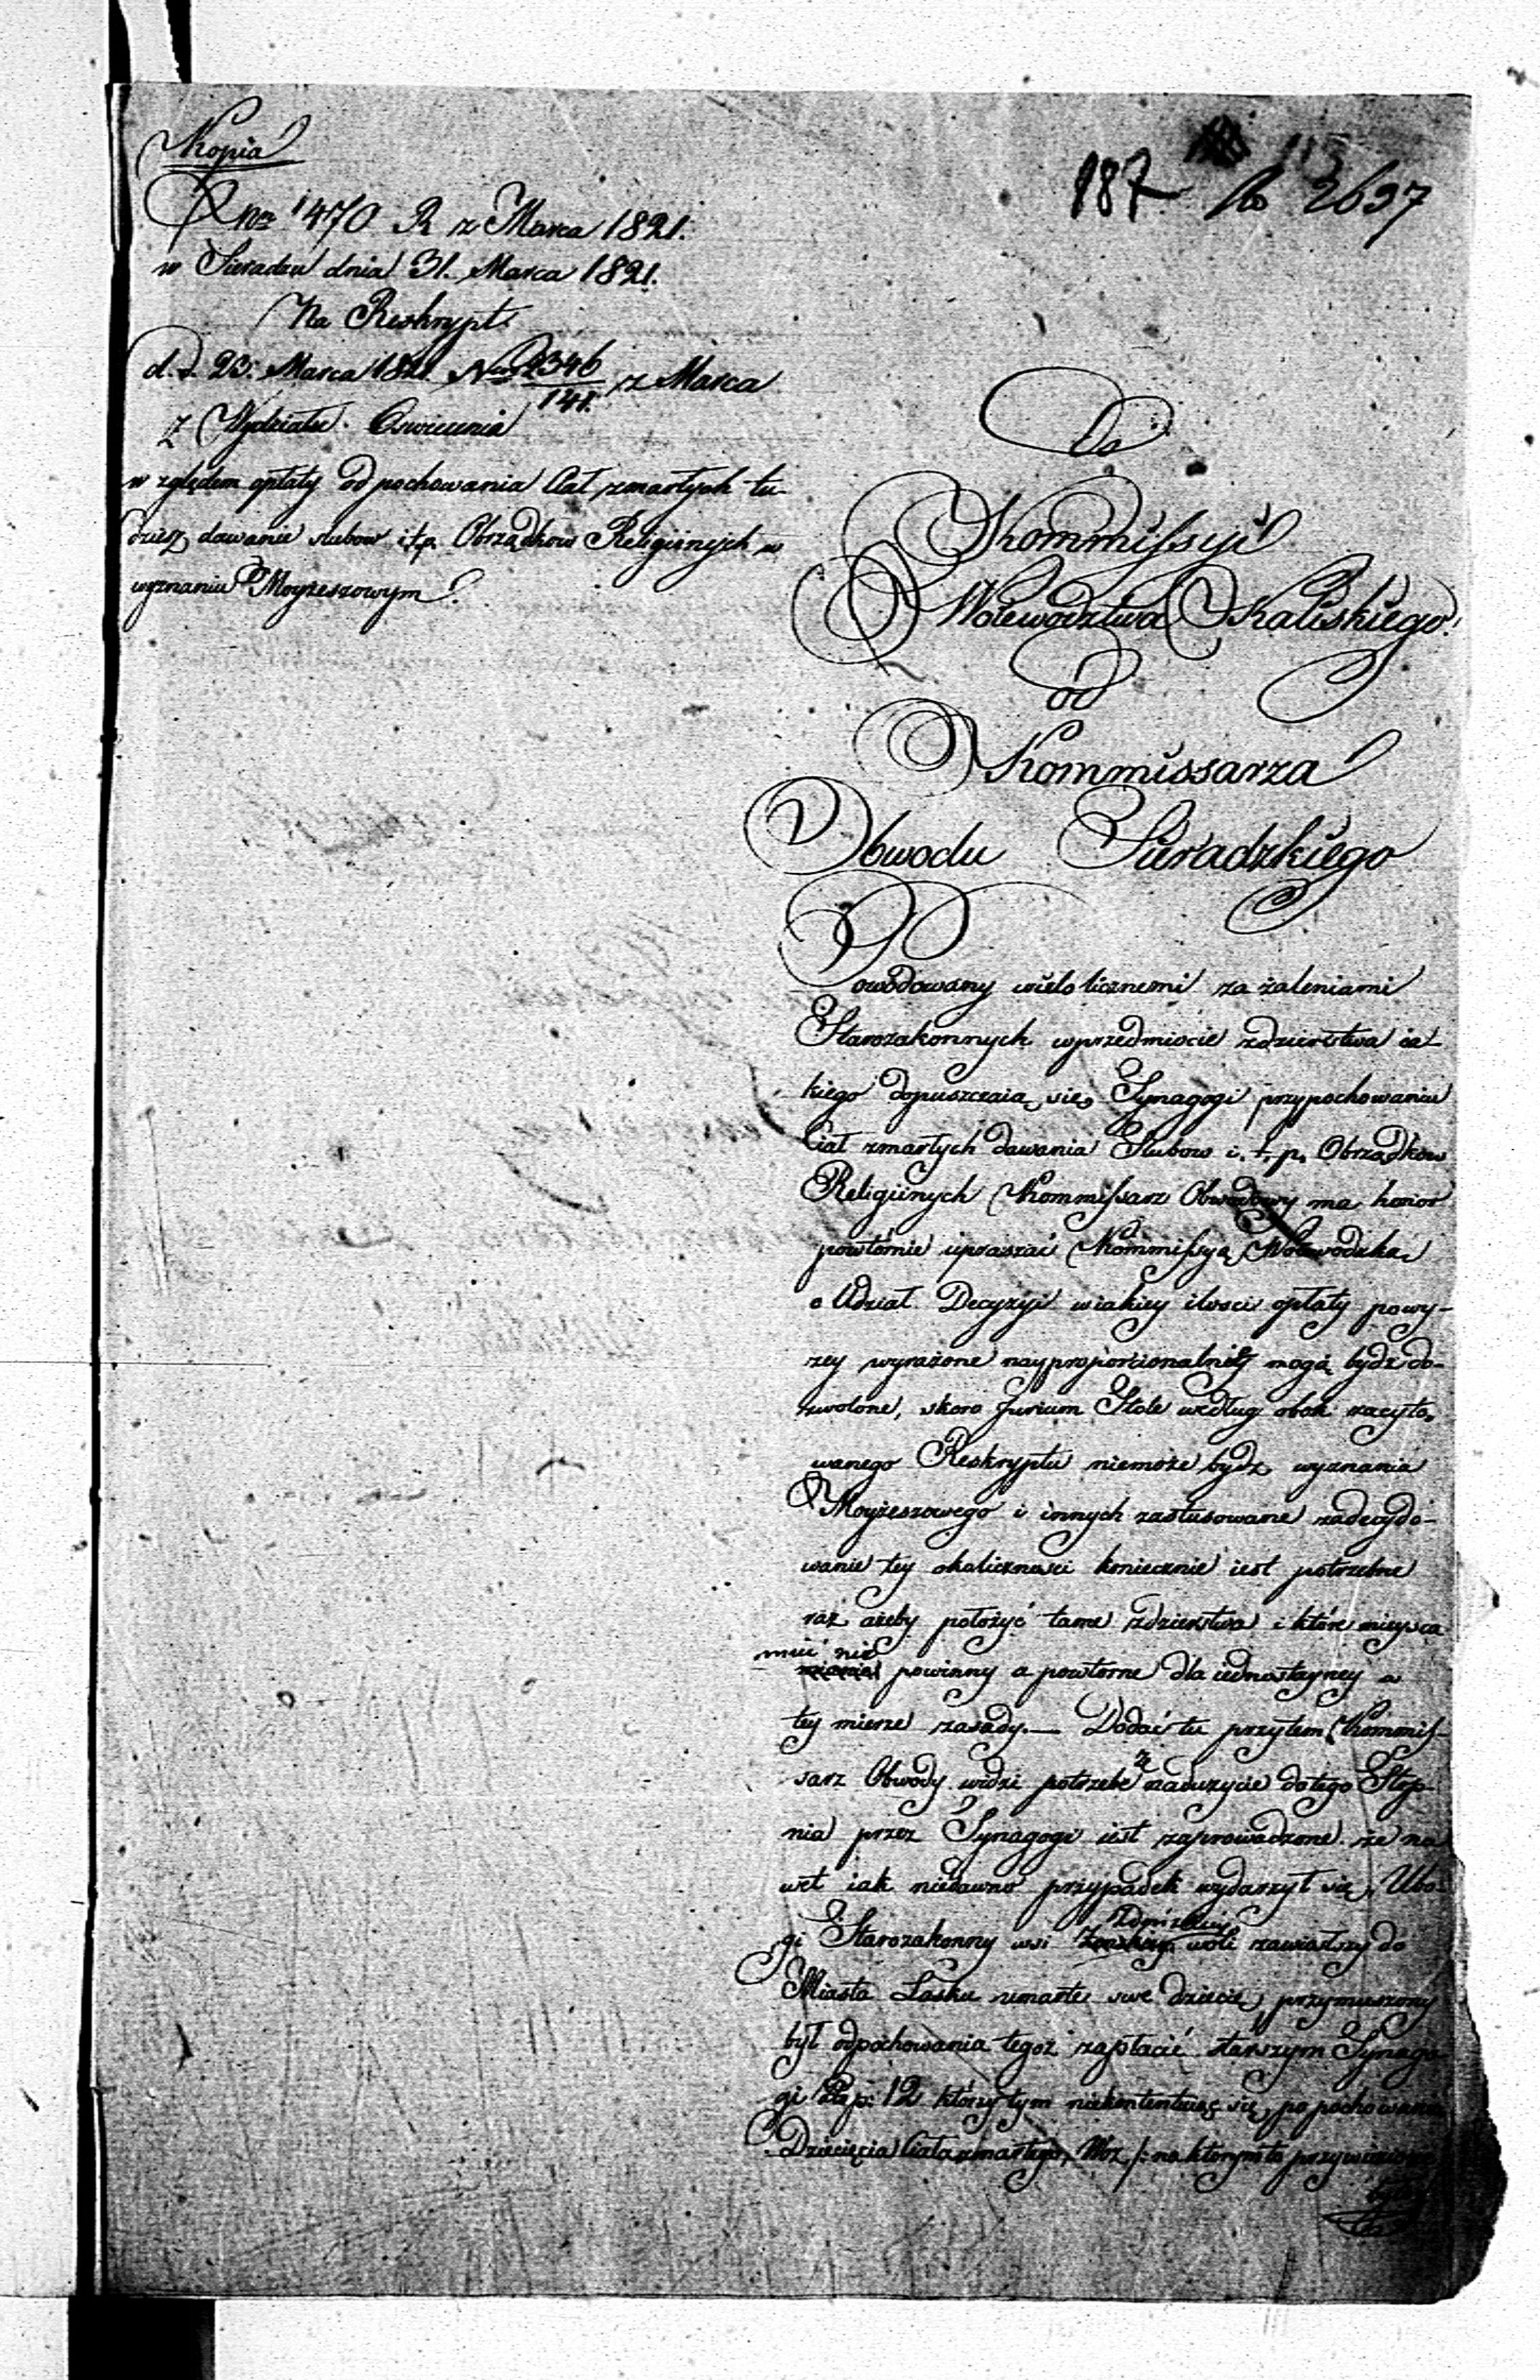 Kopia
Nro 1470 R z Marca 1821.
w Sieradzu dnia 31. Marca 1821.
Na Reskrypt
d. d. 23. Marca 1821. Nro 2346/141. z Marca
z Wydziału Oswiecenia
względem opłaty od pochowania Ciał zmarłych tu-
dzież dawanie slubow i.t.p. Obrządkow Religiinych w
wyznaniu Moyżeszowym.
187 No 2637
Do
Kommissyi
Woiewodztwa Kaliskiego
od
Kommissarza
Obwodu Sieradzkiego
Powodowany wielolicznemi za żaleniami
Starozakonnych wprzedmiocie zdzierstwa ia-
kiego dopuszczaią się Synagogi przypochowaniu
Ciał zmarłych dawania Slubow i. t. p. Obrządkow
Religiinych Kommissarz Obwodowy ma honor
powtórnie upraszać Kommissyą Woiewodzką
o Udział Decyzyi wiakiey ilosci opłaty powy-
zey wyrażone nayproporcionalniey mogą bydz do-
zwolone, skoro Jurium Stole według obok zacyto-
wanego Reskryptu niemoże bydz wyznania
Moyżeszowego i innych zastusowane zadecydo-
wanie tey okaliczności koniecznie iest potrzebne
raz ażeby położyć tame zdzierstwa i które mieysca
mieć nie powinny a powtorne dla iednostayney w
tey mierze zasady. — Dodać tu przytem Kommis-
sarz Obwody widzi potrzebe że nadużycie dotego Stop-
nia przez Synagogi iest zaprowadzone że na
wet iak niedawno przypadek wydarzył się, Ubo-
gi Starozakonny wsi woli zawiózłszy do
Miasta Łasku umarłe swe dziecie, przymuszony
był odpochowania tegoż zapłacić starszym Synago
gi 12 którzy tym niekontentuiąc się, po pochowaniu
Dziecięcia Ciała zmarłego, Wóz /: na którym to przywiezione